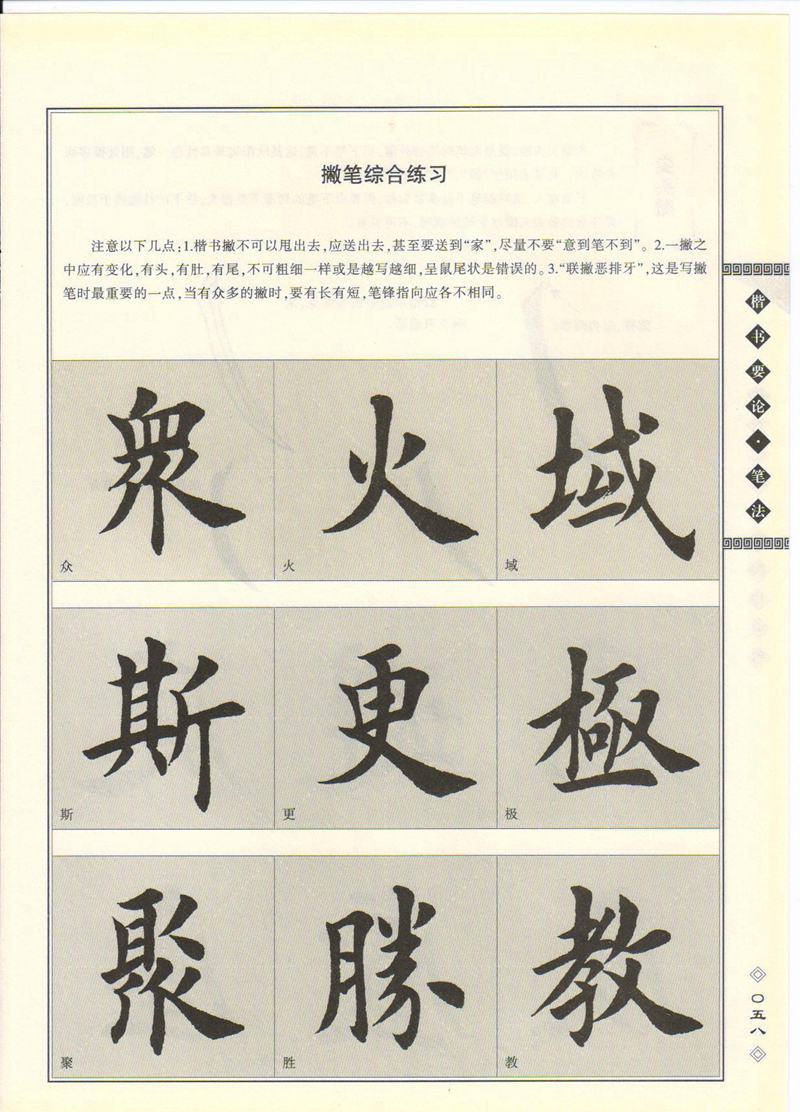 撇笔综合练习
注意以下几点:1.楷书撇不可以甩出去,应送出去,甚至要送到“家”,尽量不要“意到笔不到”。2.一撇之
中应有变化,有头,有肚,有尾,不可粗细一样或是越写越细,呈鼠尾状是错误的。3.“联撇恶排牙”,这是写撇
笔时最重要的一点,当有众多的撇时,要有长有短,笔锋指向应各不相同。
衆 火 域
众 火 域
斯 更 極
斯 更 极
聚 勝 教
聚 胜 教
楷书要论·笔法
〇五八